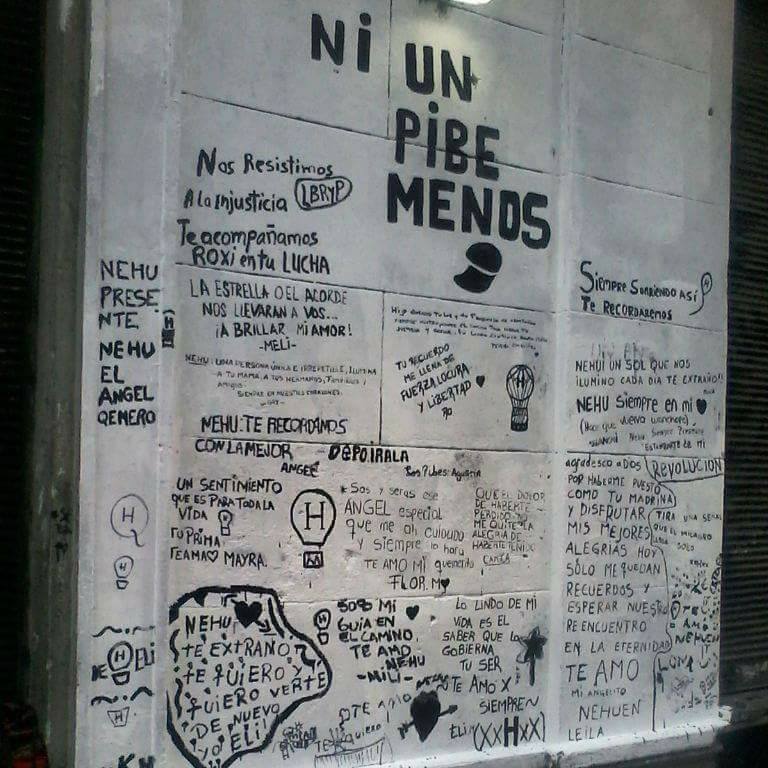 NI UN
PIBE
MENOS
Nos Resistimos
A la Injusticia LBRyP
Te acompañamos
ROXI en tu LUCHA
NEHU
PRESE
NTE
NEHU
EL
ANGEL
QEMERO
H
LA ESTRELLA O EL ACORDE
NOS LLEVARAN A VOS...
¡A BRILLAR MI AMOR!
-MELI-
NEHU: UNA PERSONA ÚNICA E IRREPETIBLE, ILUMINA
A TU MAMA, A TUS HERMANOS, FAMILIARES Y
AMIGOS.
SIEMPRE EN NUESTROS CORAZONES.
TU RECUERDO
ME LLENA DE
FUERZA, LOCURA
Y LIBERTAD
Siempre Sonriendo ASí
Te RECORDAREMOS
NEHUI UN SOL QUE NOS
ILUMINO CADA DIA TE EXTRAÑO!!
NEHU Siempre en mi
NEHU: TE RECORDAMOS
CON LA MEJOR
ANGEE
DEPO, IRALA
Los Pibes: Agustin
UN SENTIMIENTO
QUE ES PARA TODA LA
VIDA
TU PRIMA
TE AMA MAYRA.
H
Sos y seras ese
ANGEL especial
que me ah cuidado
y siempre lo hara
TE AMO MI quemerito
FLOR.M
QUE EL DOLOR
DE HABERTE
PERDIDO NO
ME QUITE LA
ALEGRIA DE
HABERTE TENIDO
agradesco a Dios REVOLUCION
POR HABERME PUESTO
COMO TU MADRINA
Y DISFRUTAR
MIS MEJORES
ALEGRIAS HOY
SÓLO ME QUEDAN
RECUERDOS Y
ESPERAR NUESTRO
REENCUENTRO
EN LA ETERNIDAD
TE AMO
MI ANGELITO
NEHUEN
LEILA
TIRA UNA SEÑAL
H
ELI
NEHU
TE EXTRAÑO
TE QUIERO Y
QUIERO VERTE
DE NUEVO
YO ELI!
SOS MI
GUIA EN
EL CAMINO,
TE AMO
NEHU
-MILI-
TE AMO
TE quiero
LO LINDO DE MI
VIDA ES EL
SABER QUE LO
GOBIERNA
TU SER
TE AMO X
SIEMPRE
ELI (XXHXX)